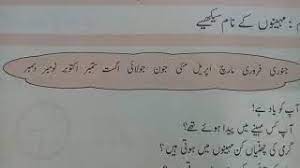 م : مہینوں کے نام سیکھیے
جنوری فروری مارچ اپریل مئی جون جولائی اگست ستمبر اکتوبر نومبر دسمبر
آپ کو یاد ہے!
آپ کس مہینے میں پیدا ہوئے تھے؟
گرمی کی چھٹیاں کن مہینوں میں ہوتی ہیں؟